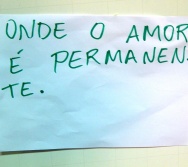 ONDE O AMOR
É PERMANEN-
TE.